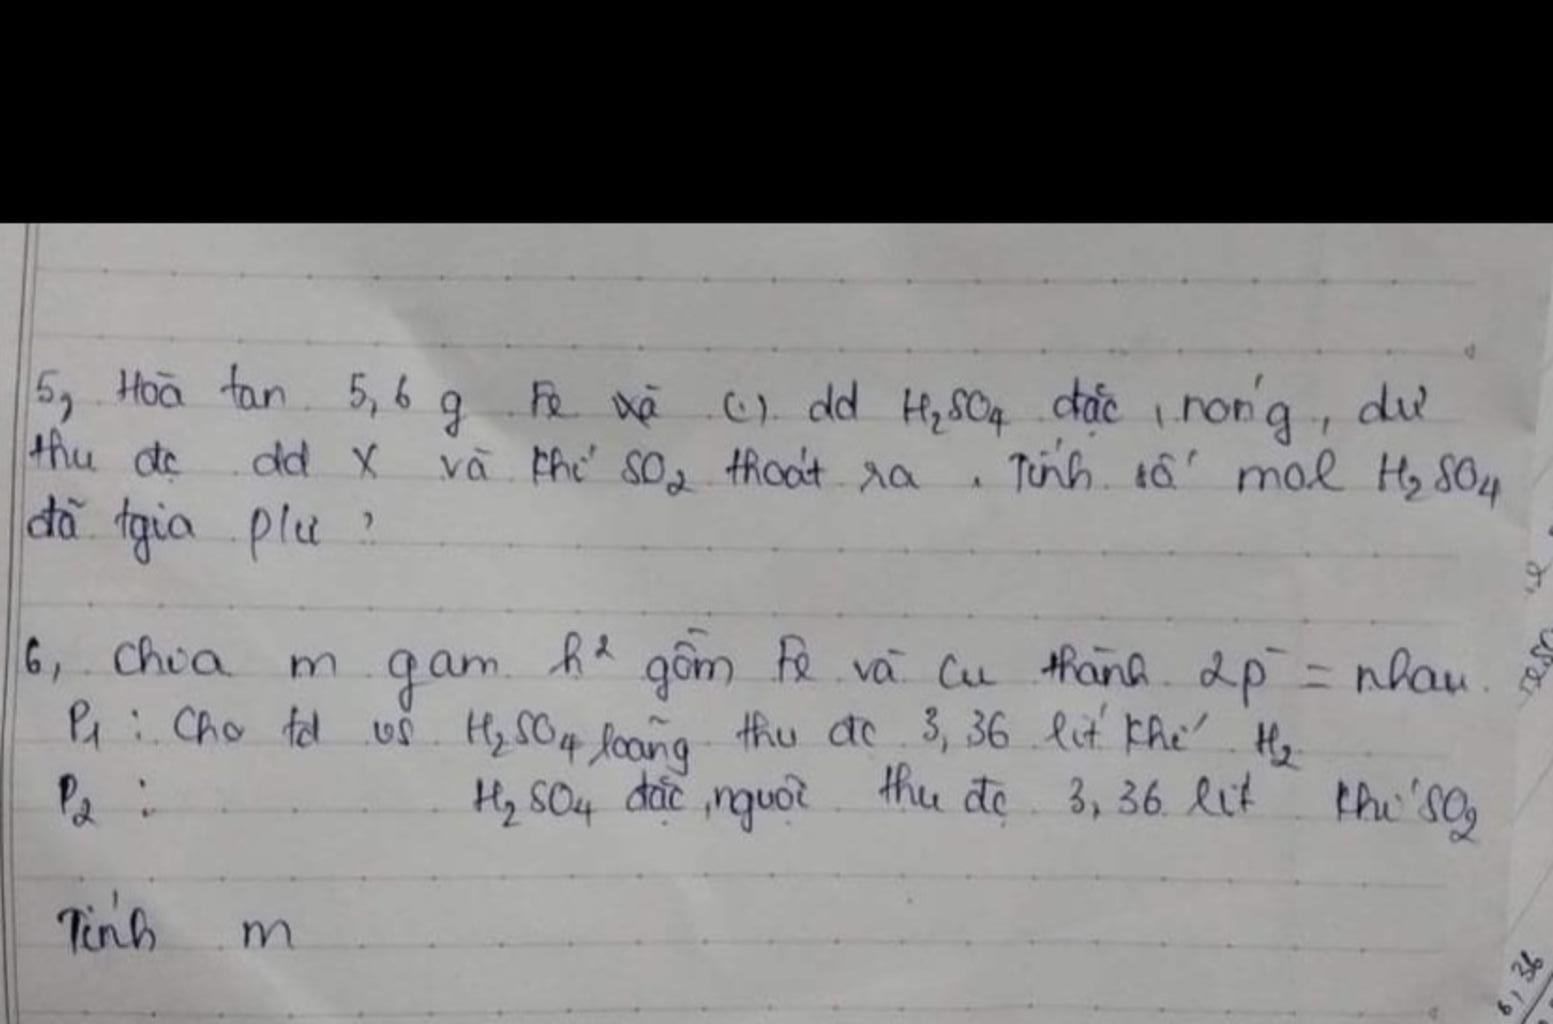 5, Hoà tan 5,6 g Fe (.) dd H₂SO₄ đặc, nóng, dư
thu đc dd X và khí SO₂ thoát ra. Tính số mol H₂SO₄
đã tgia pư?
6, chia m gam h² gồm Fe và Cu thành 2p = nhau.
P₁ : Cho td vs H₂SO₄ loãng thu đc 3,36 lít khí H₂
P₂ : H₂SO₄ đặc, nguội thu đc 3,36 lít khí SO₂
Tính m